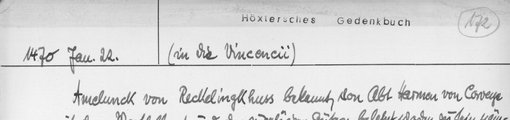 Höxtersches Gedenkbuch
172
1470 Jan. 22. (in die Vincencii)
Amelunck von Recklinckhuss bekennt, von Abt Harmen von Corveye